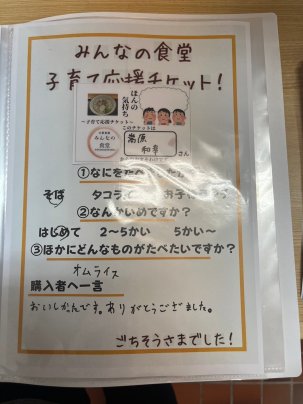 みんなの食堂
子育て応援チケット!
ほんの
気持ち
~子育て応援チケット~
このチケットは
みんなの
食堂
さん
①なにをたべ
そば タコラ お子に
②なんかいめですか?
はじめて 2~5かい 5かい~
③ほかにどんなものがたべたいですか?
オムライス
購入者へ一言
おいしかったです。ありがとうございました。
ごちそうさまでした!